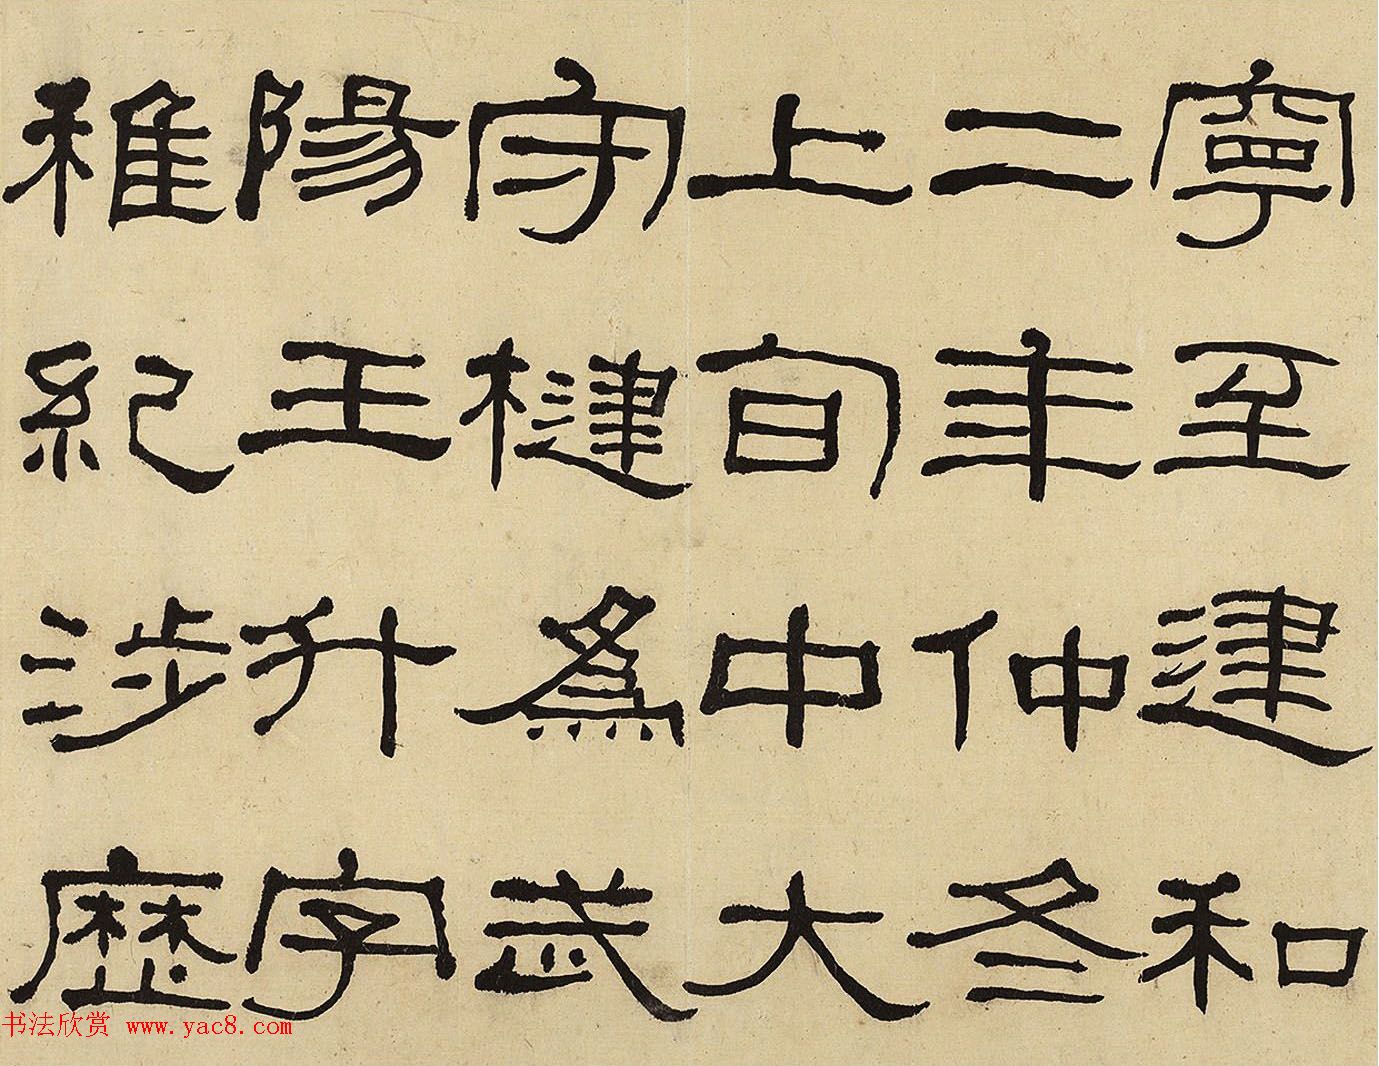 寧至建和
二年仲冬
上旬中大
守楗為武
陽王升字
稚紀涉歷
书法欣赏 www.yac8.com